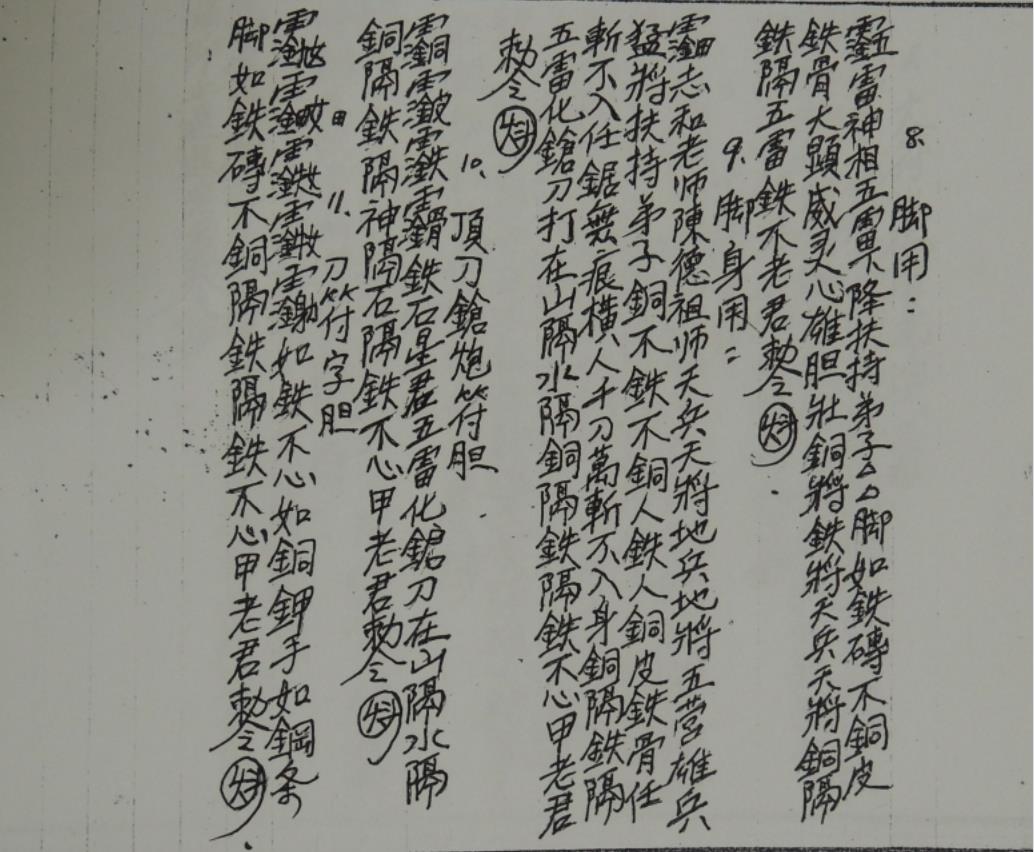 8. 脚用：
雷神相五雷下降扶持弟子厶厶脚如鉄磚不銅皮
鉄骨大顕威灵心雄胆壮銅將鉄將天兵天將銅隔
鉄隔五雷鉄不老君勅令
9. 脚身用：
志和老师陳德祖师天兵天將地兵地將五营雄兵
猛將扶持弟子銅不鉄不銅人鉄人銅皮鉄骨任
斬不入任鋸無痕横人千刀萬斬不入身銅隔鉄隔
五雷化鎗刀打在山隔水隔銅隔鉄隔鉄不心甲老君
勅令
10. 頂刀鎗炮符胆
鉄石星君五雷化鎗刀在山隔水隔
銅隔鉄隔神隔石隔鉄不心甲老君勅令
11. 刀符字胆
如鉄不心如銅鉀手如鋼条
脚如鉄磚不銅隔鉄隔鉄不心甲老君勅令